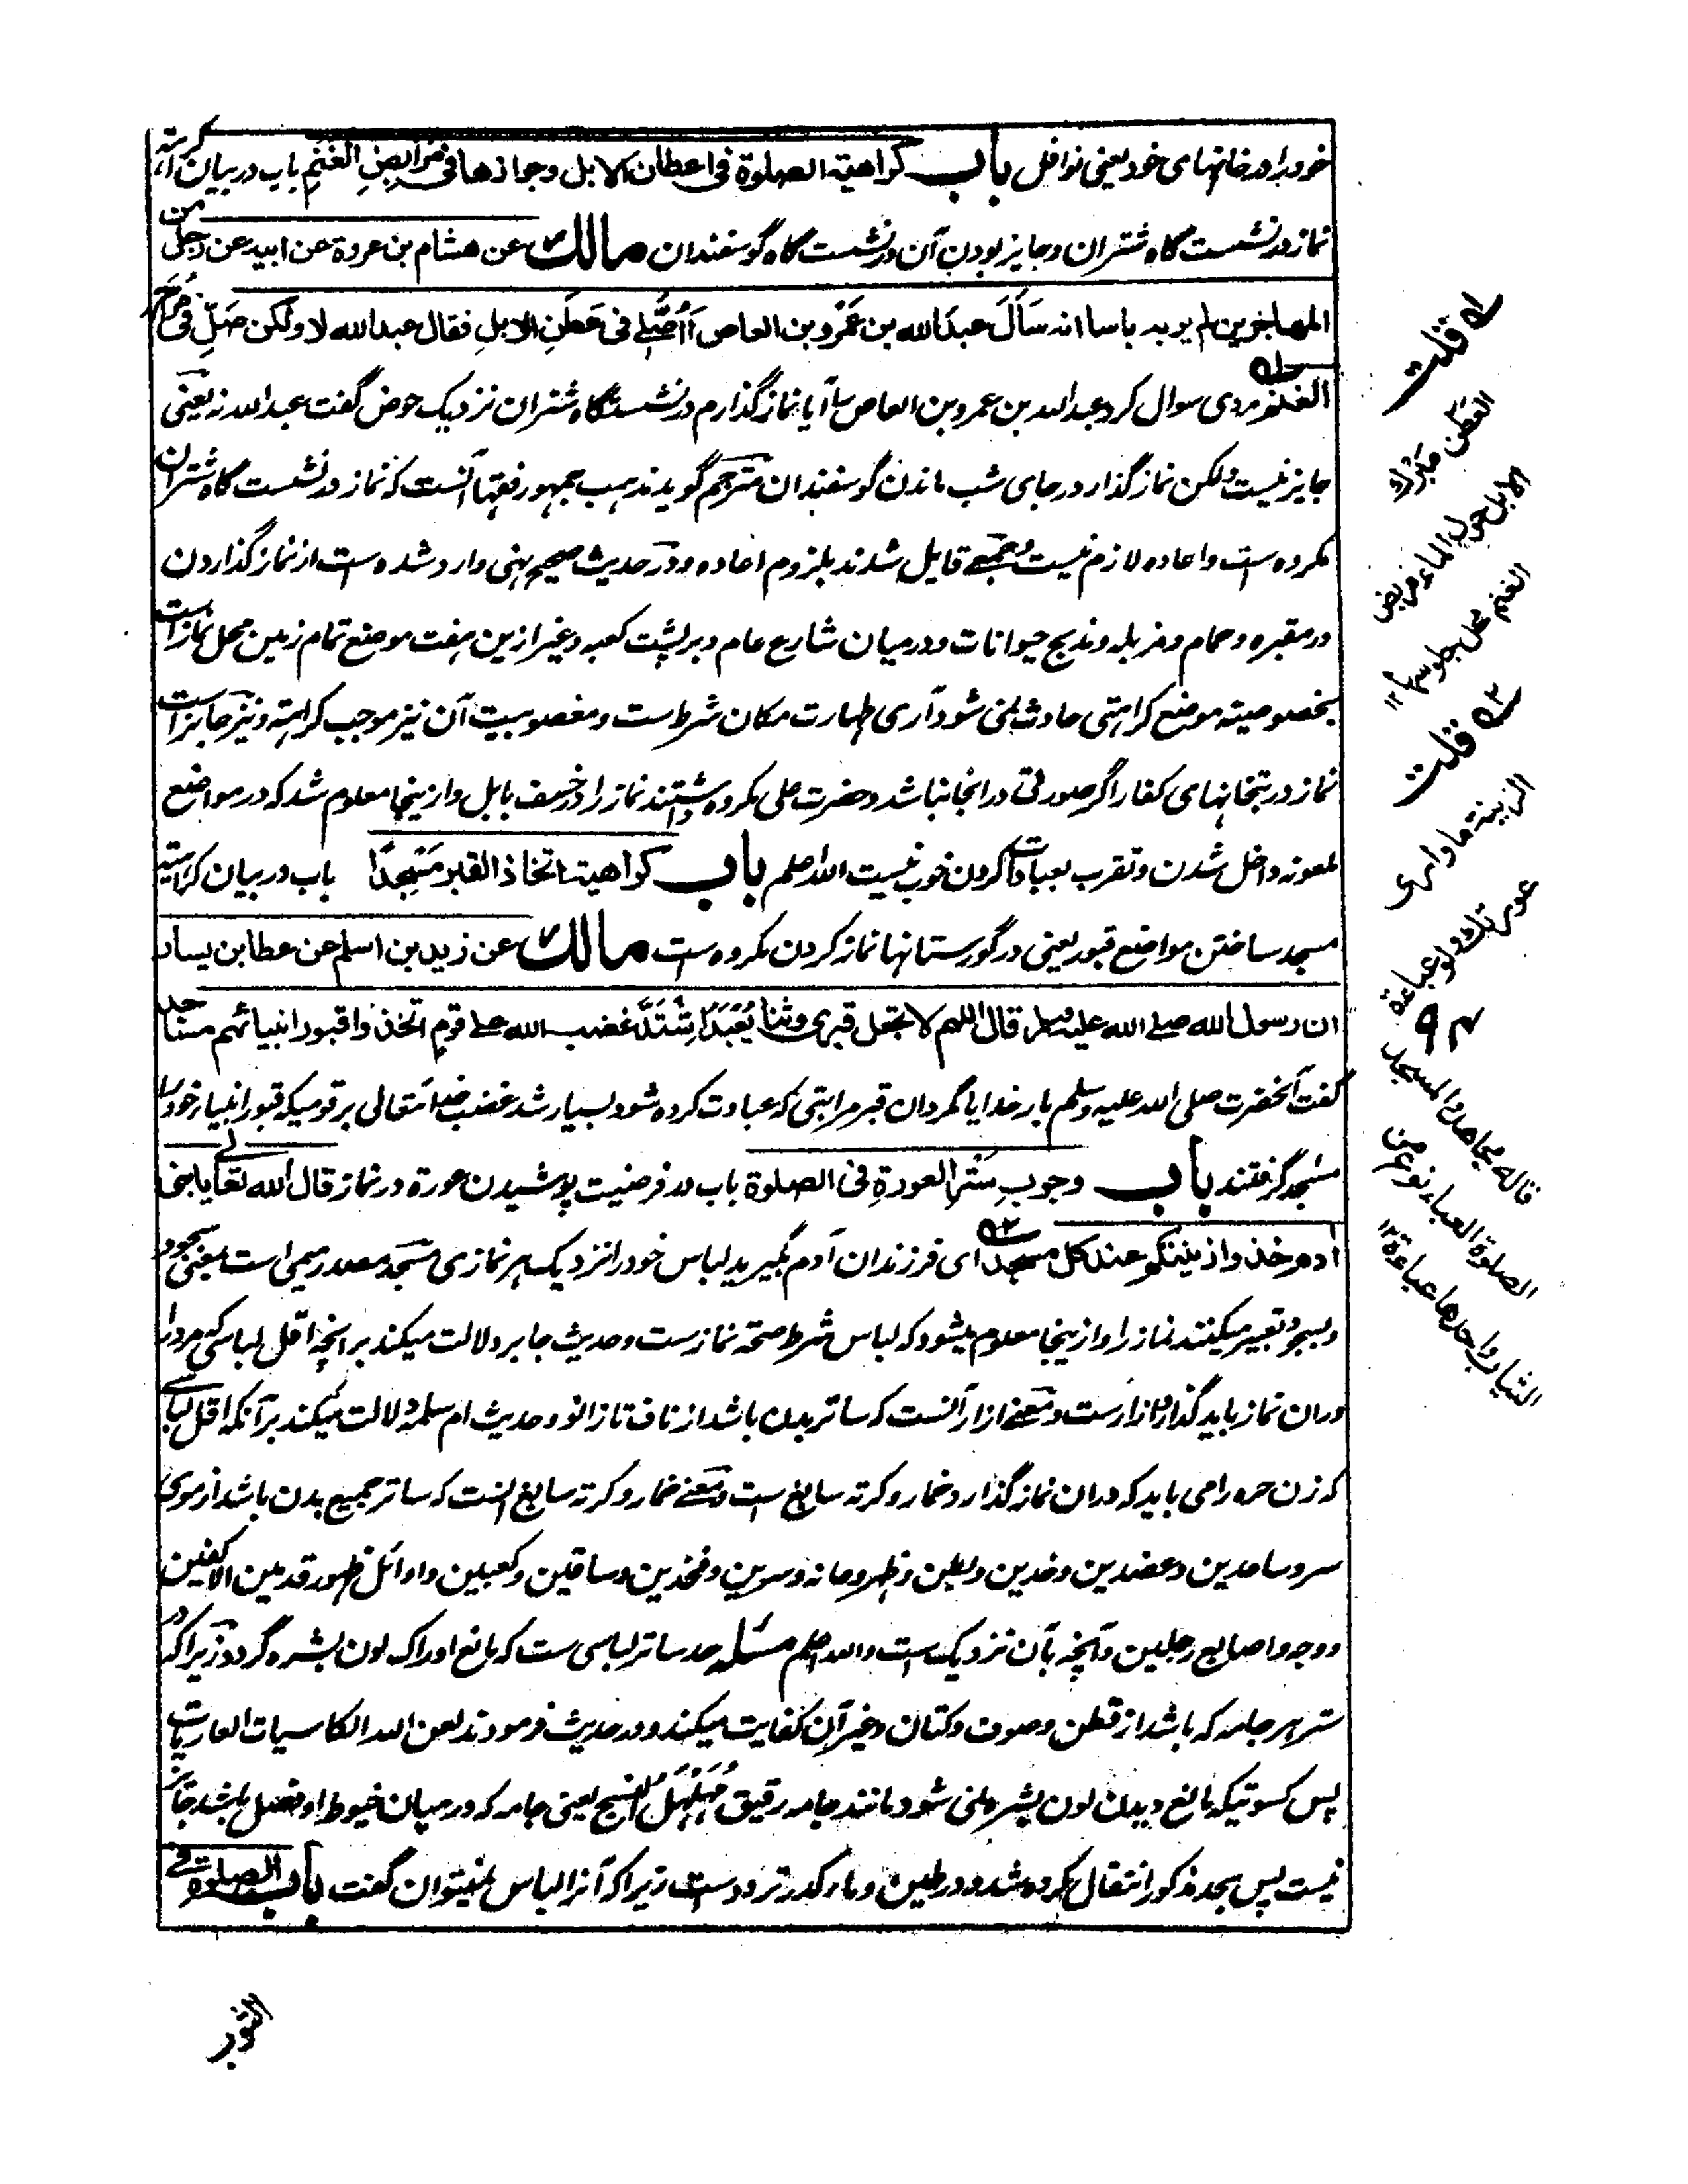 خود را در خانهای خود یعنی نوافل باب کراهیة الصلوة فی اعطان الابل وجوازها فی مرابض الغنم باب در بیان کراهیة
نماز در نشست گاه شتران و جایز بودن آن در نشست گاه گوسفندان مالک عن هشام بن عروة عن ابیه عن رجل من
المهاجرین لم یر به باسا انه سَأَلَ عبدَالله بن عَمْرو بن العاص أَأُصَلّی فی عَطَنِ الابلِ فقال عبدالله لا ولکن صَلِّ فی مُراح
الغنم مردی سوال کرد عبدالله بن عمرو بن العاص را آیا نماز گذارم در نشستگاه شتران نزدیک حوض گفت عبدالله نه یعنی
جایز نیست ولکن نماز گذار در جای شب ماندن گوسفندان مترجم گوید مذهب جمهور فقها آنست که نماز در نشست گاه شتران
مکروه ست و اعاده لازم نیست و جمعے قایل شدند بلزوم اعاده و در حدیث صحیح نهی وارد شده ست از نماز گذاردن
در مقبره و حمام و مزبله و مذبح حیوانات و در میان شارع عام و بر پشت کعبه و غیر ازین هفت موضع تمام زمین محل نماز است
بخصوصیة موضع کراهتی حادث نمی شود آری طهارت مکان شرط ست و مغصوبیت آن نیز موجب کراهیة و نیز جایز است
نماز در بتخانهای کفار اگر صورتی در انجا نباشد و حضرت علی مکروه داشتند نماز را در خسف بابل و ازینجا معلوم شد که در مواضع
ملعونه داخل شدن و تقرب بعبادات کردن خوب نیست الله اعلم باب کراهیة اتخاذ القبر مَسْجِدًا باب در بیان کراهیة
مسجد ساختن مواضع قبور یعنی در گورستانها نماز کردن مکروه ست مالک عن زید بن اسلم عن عطا بن یسار
ان رسول الله صلے الله علیه وسلم قال اللهم لا تجعل قبری وثنا یُعْبَدُ اشْتَدَّ غضب الله علے قوم اتخذوا قبور انبیائهم مساجد
گفت آنحضرت صلی الله علیه وسلم بار خدایا مگردان قبر مرا بتی که عبادت کرده شود بسیار شد غضب خدا تعالی بر قومیکه قبور انبیاء خود را
مسجد گرفتند باب وجوبِ سَتْرِ العورةِ فی الصلوة باب در فرضیت پوشیدن عورة در نماز قال الله تعالے یا بنی
آدم خذوا زینتکم عند کل مسجد ای فرزندان آدم بگیرید لباس خود را نزدیک هر نمازی مسجد مصدر میمی است بمعنی سجود
و بسجود تعبیر میکنند نماز را و ازینجا معلوم میشود که لباس شرط صحة نماز ست و حدیث جابر دلالت میکند بر انچه اقل لباسی که مرد را
دران نماز باید گذارد ازار ست و معنے ازار آنست که ساتر بدن باشد از ناف تا زانو و حدیث ام سلمه دلالت میکند بر آنکه اقل لباسے
که زن حره را می باید که دران نماز گذارد خمار و کرته سابغ ست و معنے خمار و کرته سابغ انست که ساتر جمیع بدن باشد از موی
سر و ساعدین و عضدین و خدین و بطن و ظهر و عانه و سرین و فخذین و ساقین و کعبین و اوائل ظهور قدمین الا کفین
و وجه و اصابع رجلین و آنچه بآن نزدیک ست والله اعلم مسئله حد ساتر لباسی ست که مانع ادراک لون بشره گردد زیرا که در
ستر هر جامه که باشد از قطن و صوف و کتان و غیر آن کفایت میکند و در حدیث فرمودند لعن الله الکاسیات العاریات
پس کسوتیکه مانع دیدن لون بشره نمی شود مانند جامه رقیق مُهَلْهَلُ النسج یعنی جامه که در میان خیوط او فصل باشد جائز
نیست پس بحد مذکور انتقال کرده شد و در طین و ماء کدر تردد ست زیرا که آنرا لباس نمیتوان گفت باب الصلوة فے
الثوب
له قلت
العطن مبرك
الابل حول الماء ومربض
الغنم محل جلوسها ۱۲
۲ه قلت
الزینة ما واری
عورتک ولو عباءة
قاله مجاهد والمسجد
الصلوة العباء نوع من
الثیاب واحدها عباءة ۱۲